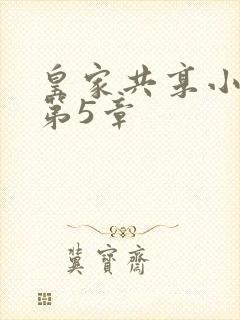 皇家共享小
第5章
冀寶齋